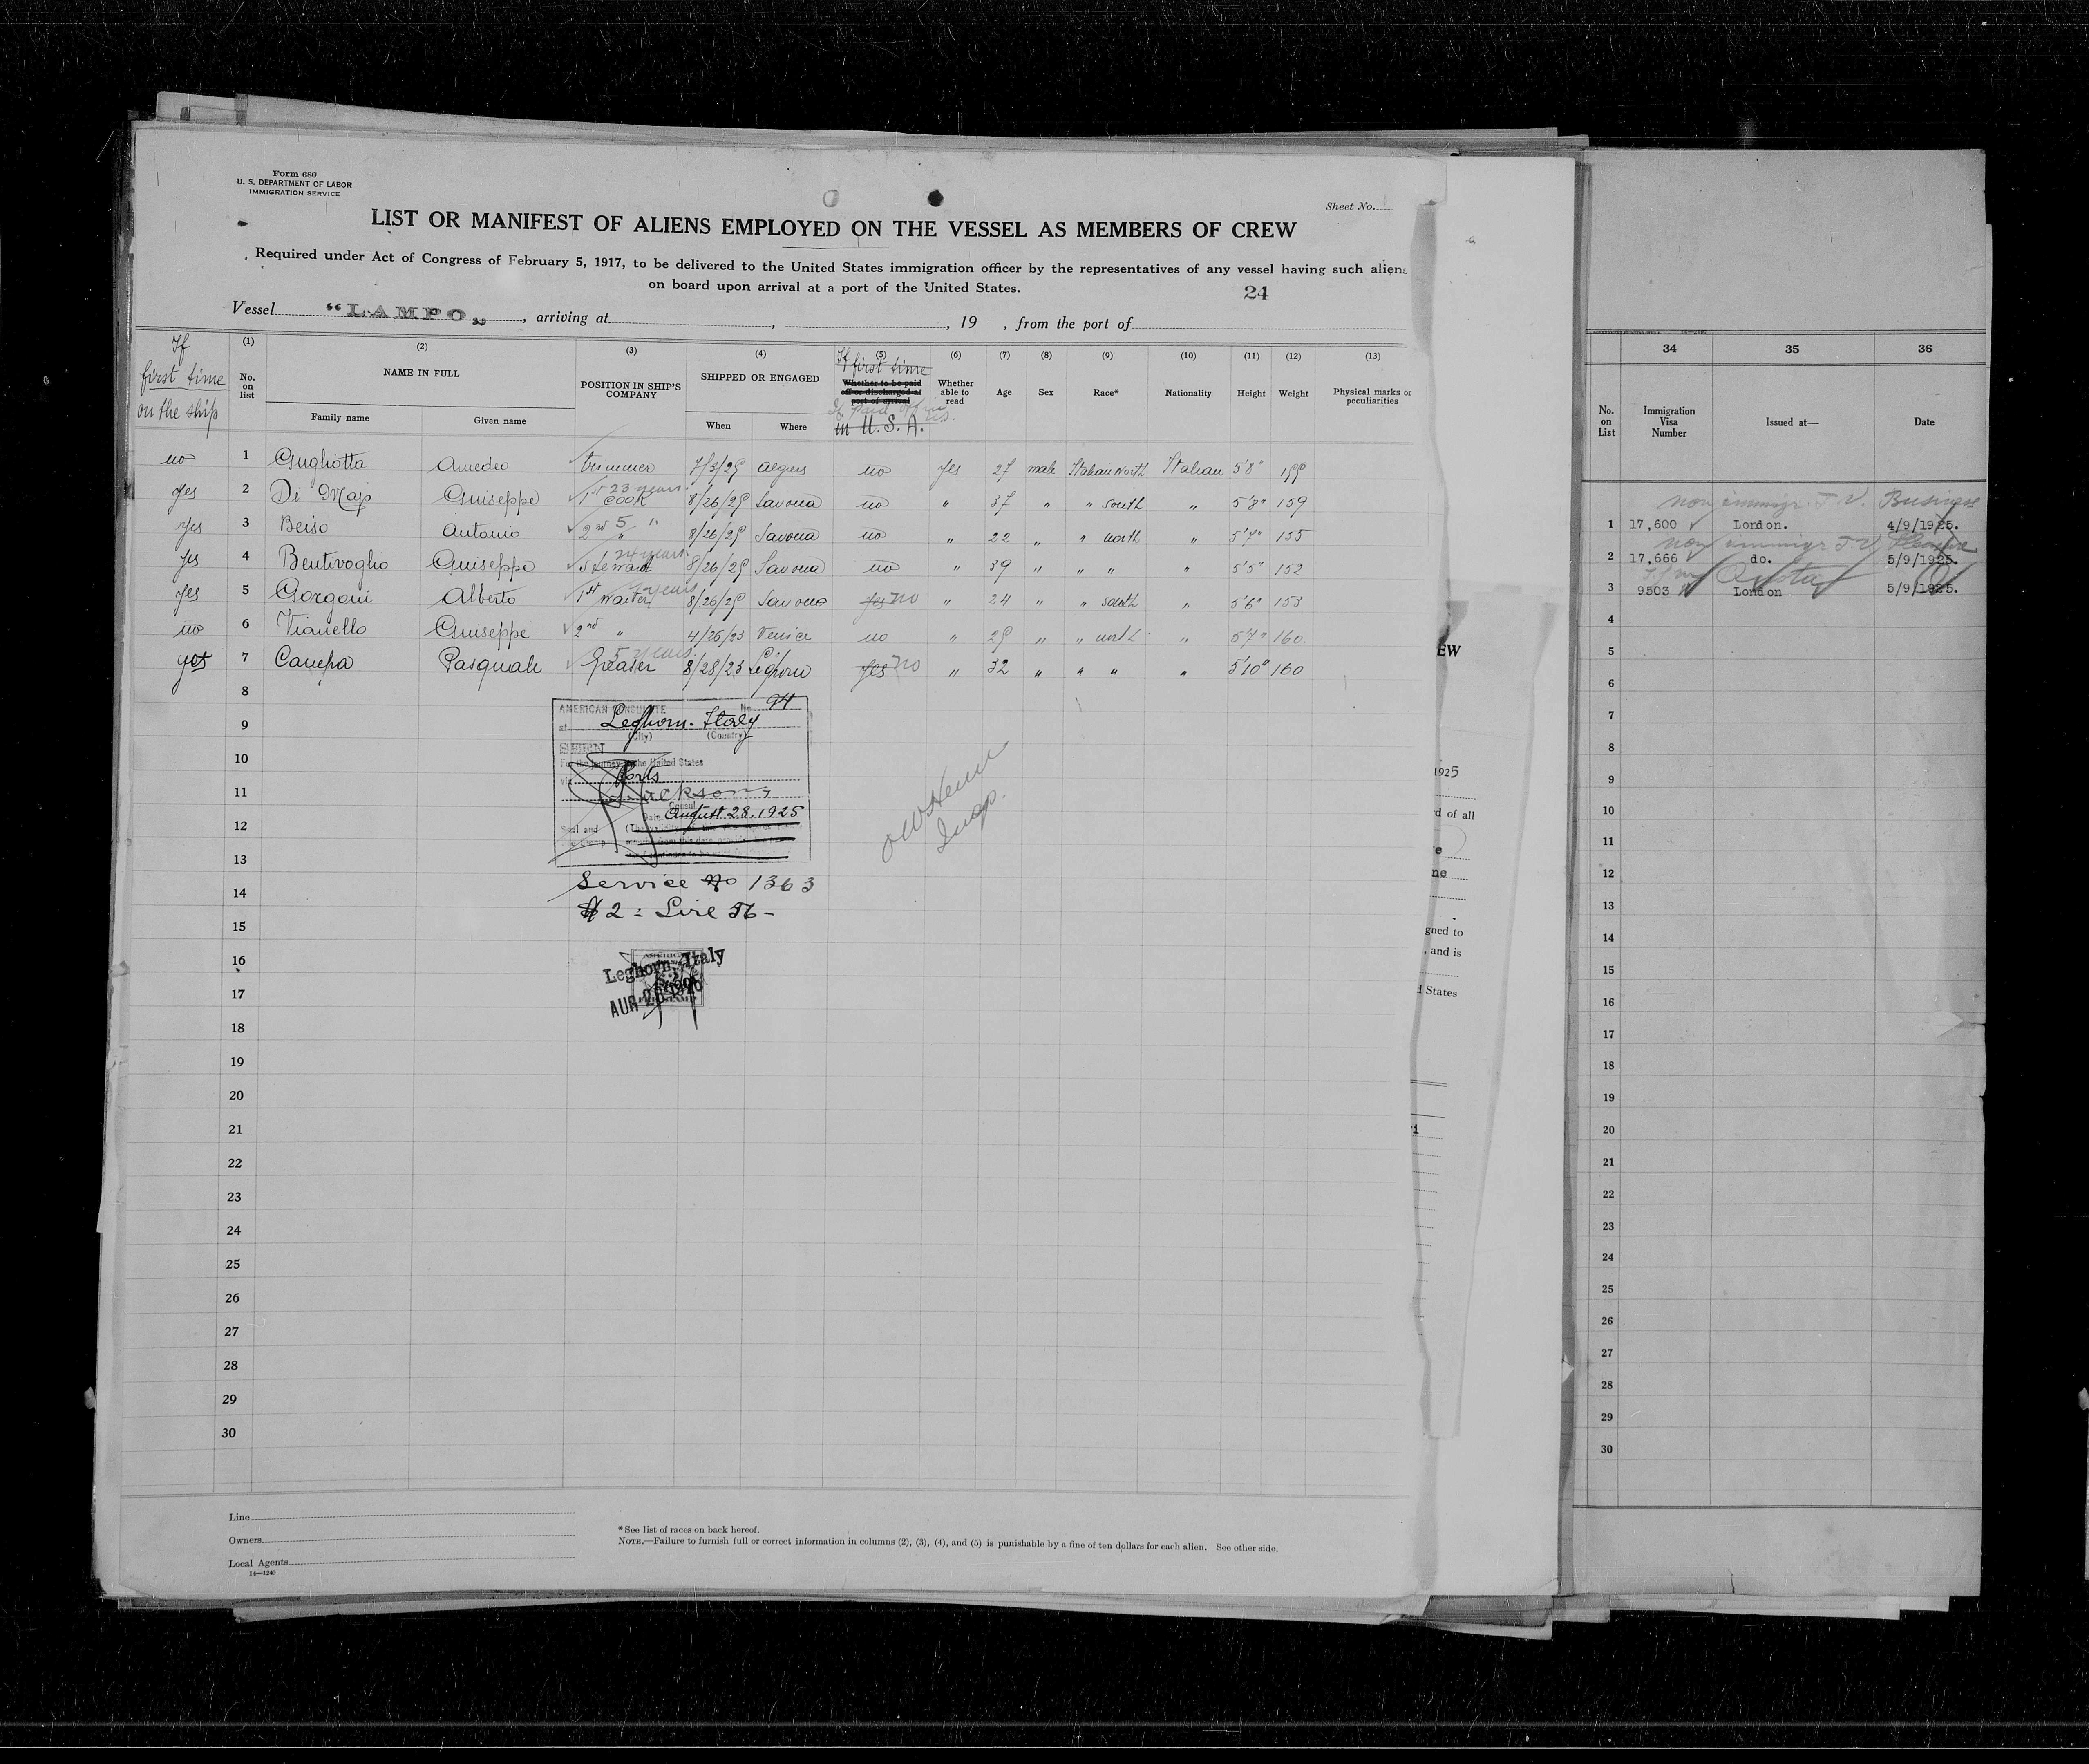 Form 680
U. S. DEPARTMENT OF LABOR
IMMIGRATION SERVICE
Sheet No.
LIST OR MANIFEST OF ALIENS EMPLOYED ON THE VESSEL AS MEMBERS OF CREW
Required under Act of Congress of February 5, 1917, to be delivered to the United States immigration officer by the representatives of any vessel having such aliens
on board upon arrival at a port of the United States.
24
Vessel "LAMPO", arriving at , , 19 , from the port of
If first time on the ship
(1) No. on list
(2) NAME IN FULL Family name Given name
(3) POSITION IN SHIP'S COMPANY
(4) SHIPPED OR ENGAGED When Where
(5) If first time Whether to be paid off or discharged at port of arrival If paid off in U.S. in U. S. A.
(6) Whether able to read
(7) Age
(8) Sex
(9) Race*
(10) Nationality
(11) Height
(12) Weight
(13) Physical marks or peculiarities
no 1 Gugliotta Amedeo trimmer Algiers no yes 27 male Italian North Italian 5'8"
yes 2 Di Majo Guiseppe 1st 23 years cook 8/26/25 Savona no " 37 " " south " 5'8" 159
yes 3 Beiso Antonio 2nd 5 " " 8/26/25 Savona no " 22 " " north " 5'7" 155
yes 4 Bentivoglio Guiseppe 24 years Steward 8/26/25 Savona no " 39 " " " " 5'5" 152
yes 5 Gorgoni Alberto 1st waiter years 8/26/25 Savona yes no " 24 " " south " 5'6" 153
no 6 Vianello Guiseppe 2nd " 4/26/23 Venice no " 25 " " north " 5'7" 160
yes 7 Canepa Pasquale Greaser 5 years 8/28/23 Leghorn yes no " 32 " " " " 5'10" 160
8
9
10
11
12
13
14
15
16
17
18
19
20
21
22
23
24
25
26
27
28
29
30
AMERICAN CONSULATE No. 94
at Leghorn. Italy
(City) (Country)
SEEN
For the journey to the United States
via Ports
Jackson
Consul
Date August 28, 1925
Seal and
Service No 1363
$2 = Lire 56-
Leghorn, Italy
AUG
Insp.
Line
Owners
Local Agents
14—1240
*See list of races on back hereof.
NOTE.—Failure to furnish full or correct information in columns (2), (3), (4), and (5) is punishable by a fine of ten dollars for each alien. See other side.
EW
1925
d of all
e
ne
gned to
, and is
d States
34 35 36
No. on List
Immigration Visa Number
Issued at—
Date
non immigr. T.V. Business
1 17,600 London. 4/9/1925.
non immigr T.V. Pleasure
2 17,666 do. 5/9/1925.
3 9503 London 5/9/1925.
4
5
6
7
8
9
10
11
12
13
14
15
16
17
18
19
20
21
22
23
24
25
26
27
28
29
30